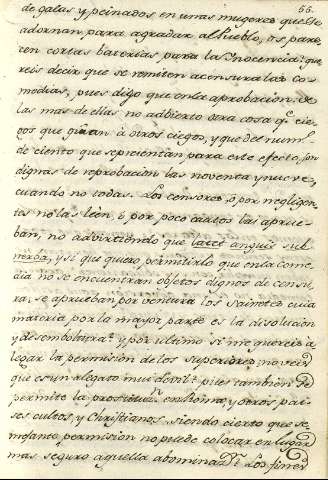 66.
de galas y peinados en unas mugeres que se
adornan para agradar al Pueblo, os pare
cen cortas baterias para la Ynocencia? que
reis decir que se remiten a censura las co
medias, pues digo que en la aprobacion de
las mas de ellas no advierto otra cosa q.e cie
gos que guian à otros ciegos, y que del num.o
de ciento que se presentan para este efecto, son
dignas de reprobacion las noventa y nueve,
cuando no todas. Los censores ò por negligen
tes no las lèen, ò por poco cautos las aprue
ban, no advirtiendo que latet anguis sub
herba, y si que quiero permitirlo que en la come
dia no se encuentran objetos dignos de censu
ra, se aprueban por ventura los Sainetes cuia
materia por la mayor parte es la disolucion
y desemboltura? y por ultimo si me quereis a
legar la permision de los superiores, no veis
que es un alegato mui devil? pues tambien se
permite la prostituc.n en Roma, y otros pai
ses cultos, y Christianos, siendo cierto que se
mejante permision no puede colocar en lugar
mas seguro aquella abominac.n Los fines